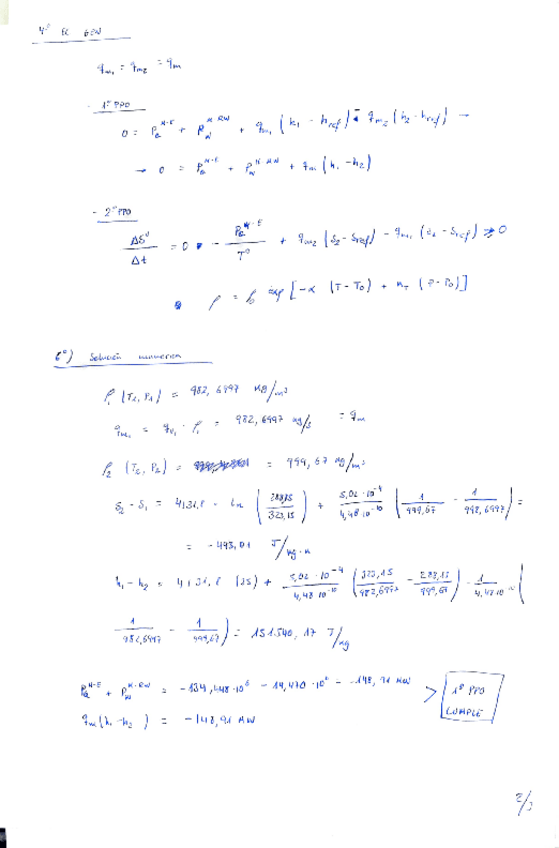 4º) EC GEN
q_m1 = q_m2 = q_m
- 1º PPO
0 = P_Q^{M-E} + P_W^{M-RW} + q_m1 (h_1 - h_ref) - q_m2 (h_2 - h_ref) →
→ 0 = P_Q^{M-E} + P_W^{M-RW} + q_m (h_1 - h_2)
- 2º PPO
ΔS^U / Δt = 0 - P_Q^{M-E} / T^0 + q_m2 (S_2 - S_ref) - q_m1 (S_1 - S_ref) ≥ 0
ρ = ρ_0 exp [-α (T - T_0) + K_T (P - P_0)]
6º) Solución numerica
ρ_1 (T_1, P_1) = 982,6997 kg/m³
q_m1 = q_v1 · ρ_1 = 982,6997 kg/s = q_m
ρ_2 (T_2, P_2) = = 999,67 kg/m³
S_2 - S_1 = 4131,8 · Ln (288,15 / 323,15) + 5,02 · 10^{-4} / 4,48 · 10^{-10} (1 / 999,67 - 1 / 998,6997) =
= - 493,01 J/kg·K
h_1 - h_2 = 4131,8 (35) + 5,02 · 10^{-4} / 4,48 · 10^{-10} (323,15 / 982,6997 - 288,15 / 999,67) - 1 / 4,48 · 10^{-10} (
1 / 982,6997 - 1 / 999,67) = 151.540,17 J/kg
P_Q^{M-E} + P_W^{M-RW} = -134,448·10^6 - 14,470·10^6 = -148,91 MW
> 1º PPO CUMPLE
q_m (h_1 - h_2) = -148,91 MW
2/3